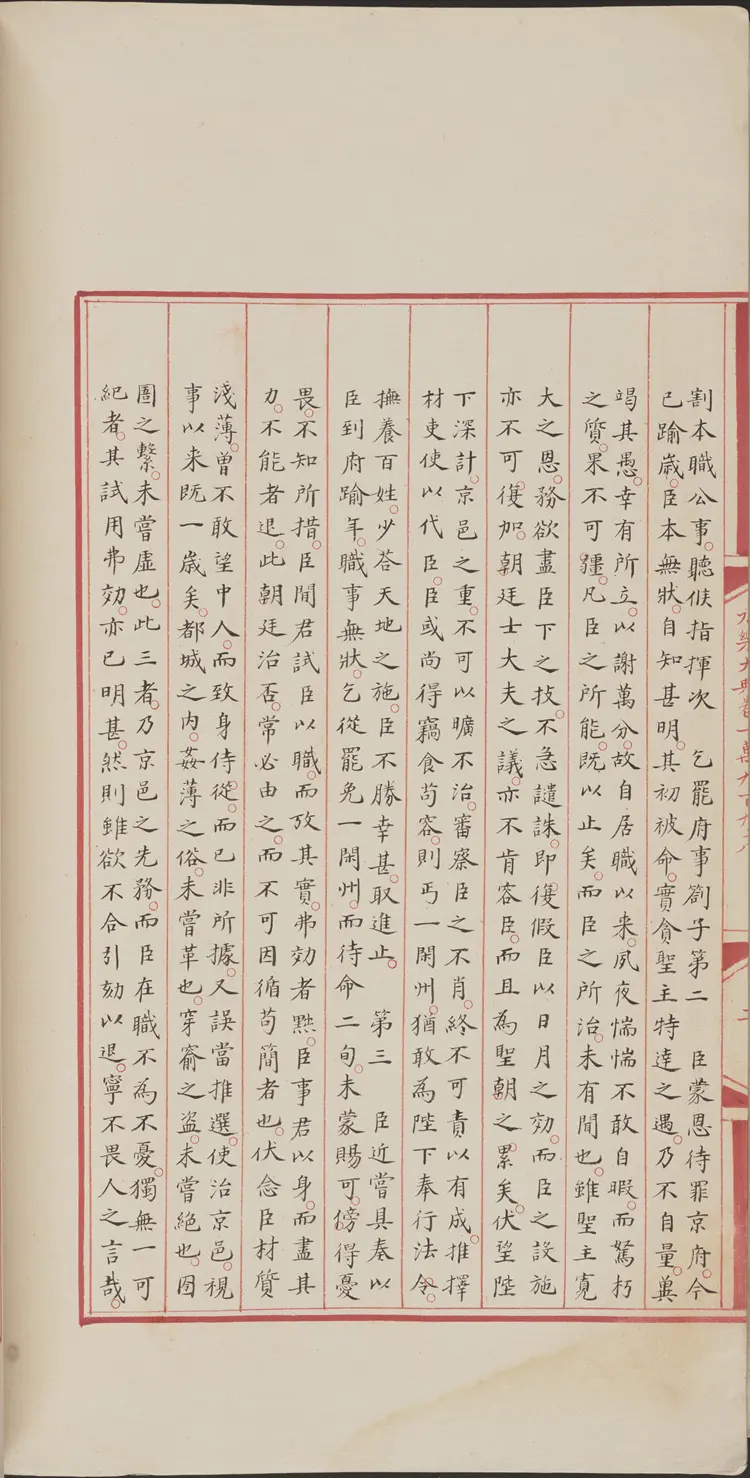 永樂大典卷一萬九百九十八
二
割本職公事。聽候指揮次　乞罷府事劄子第二　臣蒙恩待罪京府。今
已踰歲。臣本無狀。自知甚明。其初被命。實貪聖主特達之遇。乃不自量。冀
竭其愚。幸有所立。以謝萬分。故自居職以来。夙夜惴惴不敢自暇。而駑朽
之質。果不可疆。凡臣之所能。既以止矣。而臣之所治。未有間也。雖聖主寛
大之恩。務欲盡臣下之技。不急譴誅。即復假臣以日月之効。而臣之設施
亦不可復加。朝廷士大夫之議。亦不肯容臣。而且為聖朝之累矣。伏望陛
下深計。京邑之重。不可以曠不治。審察臣之不肖。終不可責以有成。推擇
材吏使以代臣。臣或尚得竊食苟容。則丐一閑州。猶敢為陛下奉行法令。
撫養百姓。少荅天地之施。臣不勝幸甚。取進止。　第三　臣近嘗具奏以
臣到府踰年。職事無狀。乞從罷免一閑州。而待命二旬。未蒙賜可。傍得憂
畏。不知所措。臣聞君試臣以職。而攷其實。弗効者黜。臣事君以身。而盡其
力。不能者退。此朝廷治否。常必由之。而不可因循苟簡者也。伏念臣材質
淺薄。曾不敢望中人。而致身侍從。而已非所據。又誤當推選。使治京邑。視
事以来既一歲矣。都城之内。姦薄之俗。未嘗革也。穿窬之盜。未嘗絶也。囹
圄之繫。未嘗虛也。此三者。乃京邑之先務。而臣在職不為不憂。獨無一可
紀者。其試用弗効。亦已明甚。然則雖欲不合引劾以退。寧不畏人之言哉。